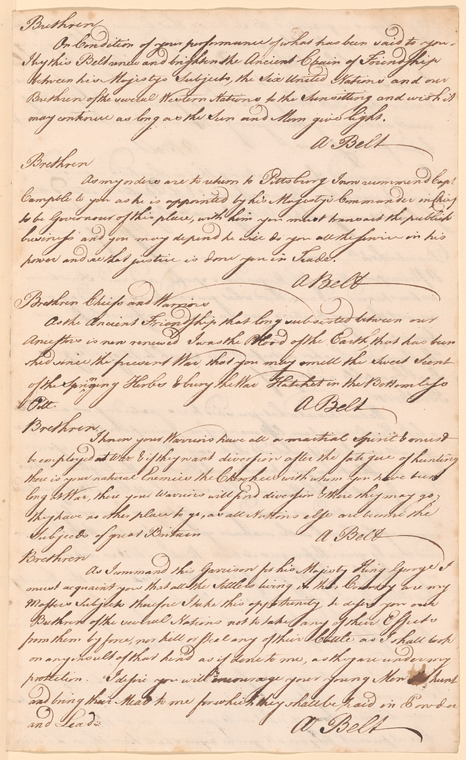 Brethren
On Condition of your performance of what has been said to you
by this Belt we and brighten the Ancient Chain of Friendship
between his Majestys Subjects, the Six United Nations and our
Brethren of the several Western Nations to the Sunsitting and wish it
may continue as long as the Sun and Moon give light.
A Belt
Brethren
As my orders are to return to Pittsburg I now recommend Capt
Campble to you as he is appointed by his Majestys Commander in chief
to be Governour of this place, with him you must transact the publick
business and you may depend he will do you all the service in his
power and see that justice is done you in Trade.
A Belt
Brethren Chiefs and Warriors
As the Ancient Friendship that long subsisted between our
Ancestors is now renewed I was the Blood of the Earth that has been
shed since the present War that you may smell the Sweet Scent
of the Springing Herbs & bury the War Hatchet in the Bottomless
Pitt
A Belt
Brethren
I know your Warriors have all a martial Spirit & must
be employed at War & if they want diversion after the fatigue of hunting
there is your natural Enemies the Cherokees with whom you have been
long at War, there your Warriors will find diversion & there they may go,
they have no other place to go, as all Nations else are become the
Subjects of great Britain
A Belt
Brethren
As I command this Garrison for his Majesty King George I
must acquaint you that all the Settlers living in the Country are my
Masters Subjects therefore I take this opportunity to desire you our
Brethren of the several Nations not to take any of their Effects
from them by force, nor kill or steal any of their Cattle as I shall look
on any insult of that kind as if done to me, as they are under my
protection. I desire you will encourage your Young Men to hunt
and bring their Meat to me for which they shall be paid in Powder
and Lead.
A Belt